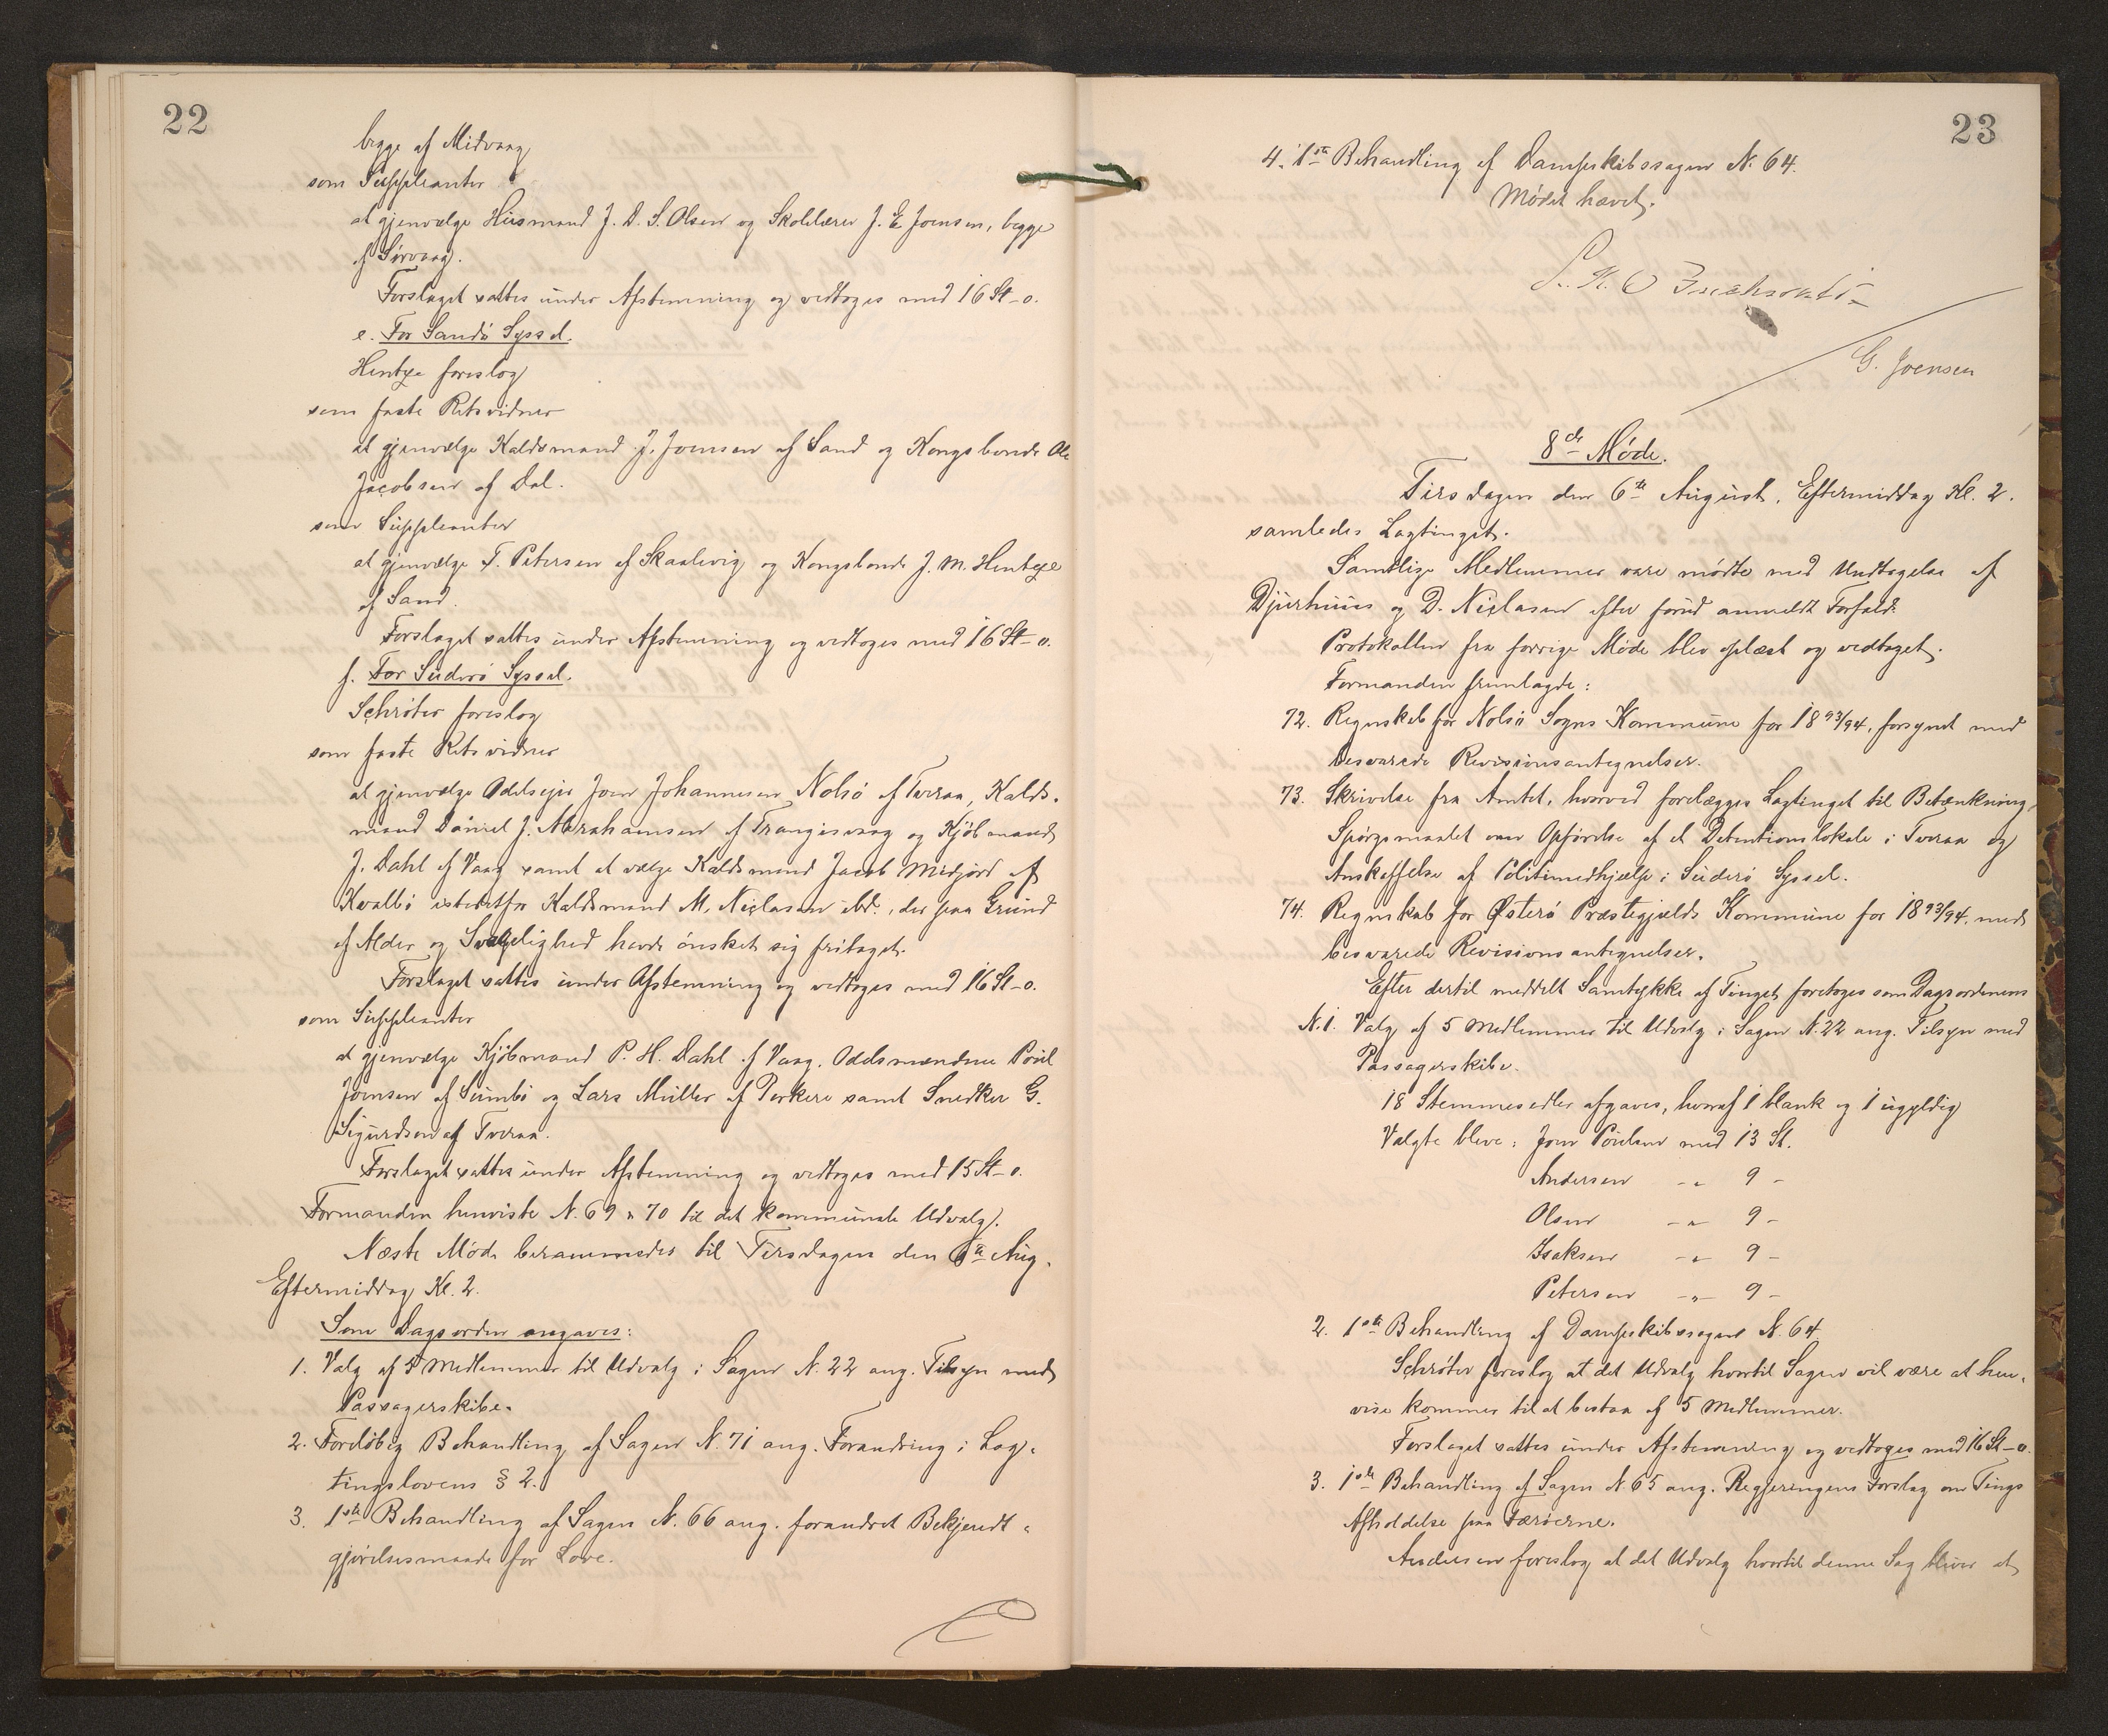 22
begge af Midvaag
som Suppleanter
at gjenvælge Husmand J. D. S. Olsen og Skolelærer J. E. Joensen, begge
af Sørvaag.
Forslaget sattes under Afstemning og vedtoges med 16 St - 0.
e. For Sandø Syssel.
Hentze foreslog
som faste Retsvidner
at gjenvælge Kaldsmand J. Joensen af Sand og Kongsbonde Ole
Jacobsen af Dal.
som Suppleanter
at gjenvælge F. Petersen af Skaalevig og Kongsbonde J. M. Hentze
af Sand.
Forslaget sattes under Afstemning og vedtoges med 16 St - 0.
f. For Suderø Syssel.
Schrøter foreslog
som faste Retsvidner
at gjenvælge Odelsejer Joen Johannesen Nolsø af Tveraa, Kalds-
mand Daniel J. Abrahamsen af Trangisvaag og Kjøbmand
J. Dahl af Vaag samt at vælge Kaldsmand Jacob Midjord af
Kvalbø istedetfor Kaldsmand M. Niclasen ibd., der paa Grund
af Alder og Svagelighed havde ønsket sig fritaget.
Forslaget sattes under Afstemning og vedtoges med 16 St - 0.
som Suppleanter
at gjenvælge Kjøbmand P. H. Dahl af Vaag, Oddsmændene Poul
Joensen af Sumbø og Lars Müller af Porkere samt Snedker G.
Sigurdsen af Tveraa.
Forslaget sattes under Afstemning og vedtoges med 15 St - 0.
Formanden henviste N. 69 & 70 til det kommunale Udvalg.
Næste Møde berammedes til Tirsdagen den 6te Aug.
Eftermiddag Kl. 2.
Som Dagsorden angaves:
1. Valg af 5 Medlemmer til Udvalg i Sagen N. 22 ang. Tilsyn med
Passagerskibe.
2. Foreløbig Behandling af Sagen N. 71 ang. Forandring i Lag-
tingslovens § 2.
3. 1ste Behandling af Sagen N. 66 ang. forandret Bekjendt-
gjørelsesmaade for Love.
23
4. 1ste Behandling af Dampskibssagen N. 64.
Mødet hævet.
G. Joensen
8de Møde.
Tirsdagen den 6te August, Eftermiddag Kl. 2.
samledes Lagtinget.
Samtlige Medlemmer vare mødte med Undtagelse af
Djurhuus og D. Niclasen efter forud anmeldt Forfald.
Protokollen fra forrige Møde blev oplæst og vedtaget.
Formanden fremlagde:
72. Regnskab for Nolsø Sogns Kommune for 1893/94, forsynet med
besvarede Revisionsantegnelser.
73. Skrivelse fra Amtet, hvorved forelægges Lagtinget til Betænkning
Spørgsmaalet om Opførelse af et Detentionslokale i Tveraa og
Anskaffelse af Politimedhjælp i Suderø Syssel.
74. Regnskab for Østerø Præstegjælds Kommune for 1893/94, med
besvarede Revisionsantegnelser.
Efter dertil meddelt Samtykke af Tinget foretoges som Dagsordenens
N. 1. Valg af 5 Medlemmer til Udvalg i Sagen N. 22 ang. Tilsyn med
Passagerskibe.
18 Stemmesedler afgaves, hvoraf 1 blank og 1 ugyldig
Valgte bleve: Joen Poulsen med 13 St.
Andersen - " 9 -
Olsen - " - 9 -
Isaksen - " 9 -
Petersen - " - 9 -
2. 1ste Behandling af Dampskibssagen N. 64
Schrøter foreslog at det Udvalg hvortil Sagen vil være at hen-
vise kommer til at bestaa af 5 Medlemmer.
Forslaget sattes under Afstemning og vedtoges med 16 St - 0.
3. 1ste Behandling af Sagen N. 65 ang. Regjeringens Forslag om Tings
Afholdelse paa Færøerne.
Andersen foreslog at det Udvalg hvortil denne Sag bliver at